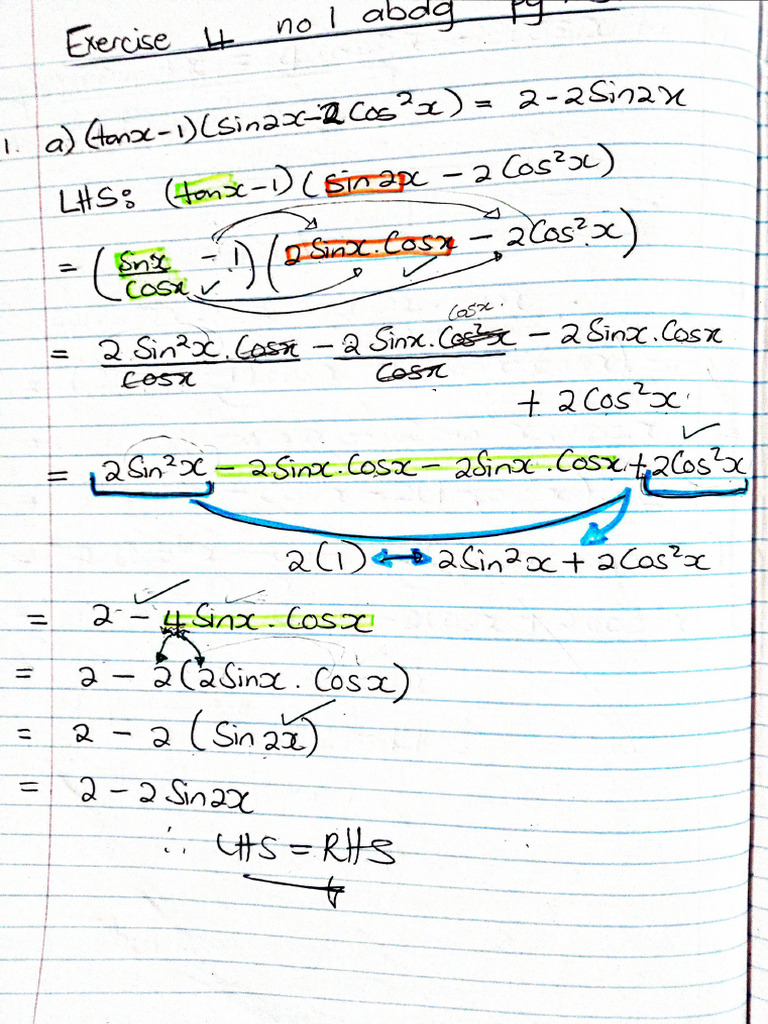 Exercise 4 no 1 abdg pg
1. a) (tanx-1)(Sin2x-2Cos²x) = 2-2Sin2x
LHS: (tanx-1)(Sin2x - 2Cos²x)
= (Sinx/Cosx - 1)(2Sinx.Cosx - 2Cos²x)
Cosx.
= 2Sin²x.Cosx/Cosx - 2Sinx.Cos²x/Cosx - 2Sinx.Cosx
+ 2Cos²x
= 2Sin²x - 2Sinx.Cosx - 2Sinx.Cosx + 2Cos²x
2(1) ↔ 2Sin²x + 2Cos²x
= 2 - 4Sinx.Cosx
= 2 - 2(2Sinx.Cosx)
= 2 - 2(Sin2x)
= 2 - 2Sin2x
∴ LHS = RHS